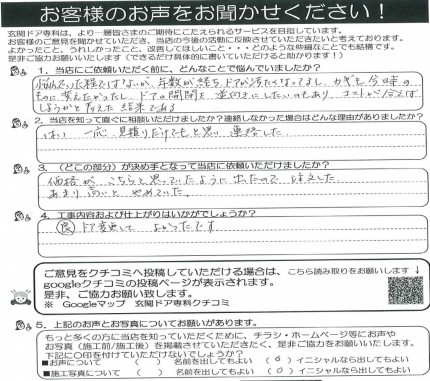 お客様のお声をお聞かせください！
玄関ドア専科は、より一層皆さまのご期待にこたえられるサービスを目指しています。
お客様のご意見を聞かせていただき、当店の今後の活動に反映させていただきたいと考えております。
よかったこと、うれしかったこと、改善してほしいこと・・・どのような些細なことでも結構です。
是非ご協力お願いいたします（できるだけ具体的に書いていただけると助かります！）
1．当店にご依頼いただく前に、どんなことで悩んでいましたか？
悩んでいた程ではないが、年数が経ちドアが冷たくなってるし、カギも今時の
ものに変えたかったし、ドアの開閉を逆向きにしたいのもあり、コストが合えば
しようかと考えた結果である
2．当店を知って直ぐに相談いただけましたか？連絡しなかった場合はどんな理由がありましたか？
はい 一応、見積りだけでもと思い連絡した
3．（どこの部分）が決め手となって当店に依頼いただけましたか？
価格が、こちらと思っていたように出たので、注文した
あまり高いと、やめていた。
4．工事内容および仕上がりはいかがでしょうか？
良 ドア変更して よかったです
ご意見をクチコミへ投稿していただける場合は、こちら読み取りをお願いします
googleクチコミの投稿ページが表示されます。
是非、ご協力お願い致します。
※ Googleマップ 玄関ドア専科クチコミ
5．上記のお声とお写真についてお願いがあります。
もっと多くの方に当店を知っていただくために、チラシ・ホームページ等にお声や
お写真（施工前/施工後）を掲載させていただきたく、是非ご協力をお願いいたします。
下記に○印を付けていただけないでしょうか？
■お声について （ ） 名前を出してもよい （○）イニシャルなら出してもよい
■施工写真について （ ） 名前を出してもよい （○）イニシャルなら出してもよい